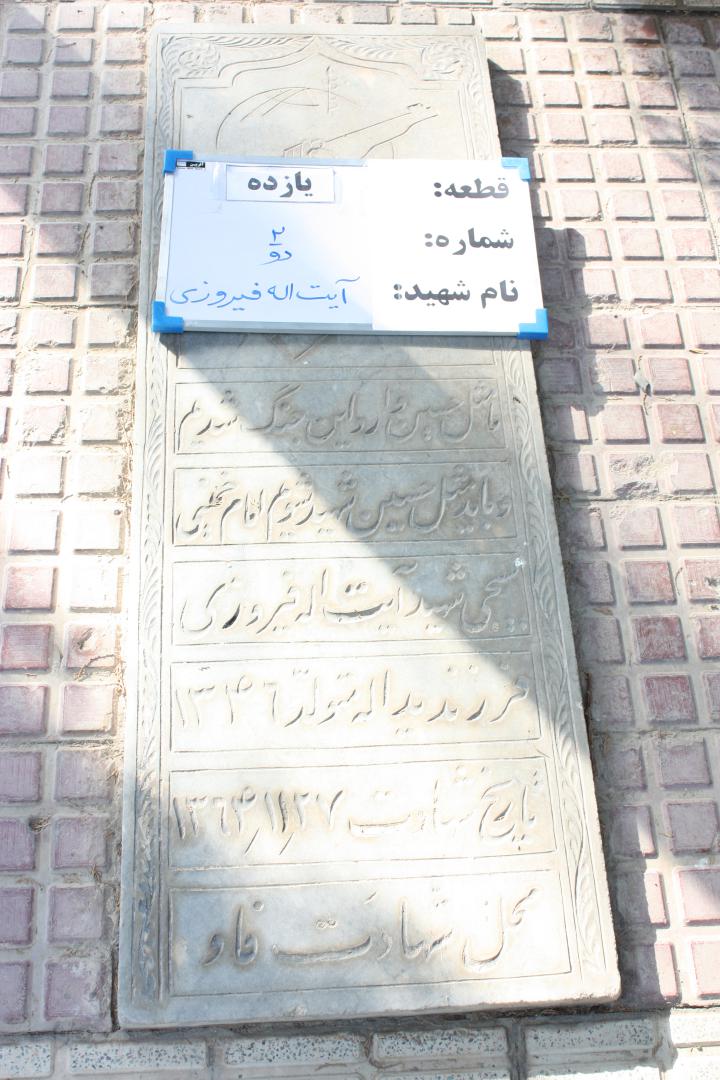 قطعه: یازده
شماره: ۲
دو
نام شهید: آیت اله فیروزی
ما مثل حسین وارد این جنگ شدیم
و باید مثل حسین شهید شویم امام خمینی
بسیجی شهید آیت اله فیروزی
فرزند یداله تولد ۱۳۴۶
تاریخ شهادت ۱۳۶۴/۱۱/۲۷
محل شهادت فاو